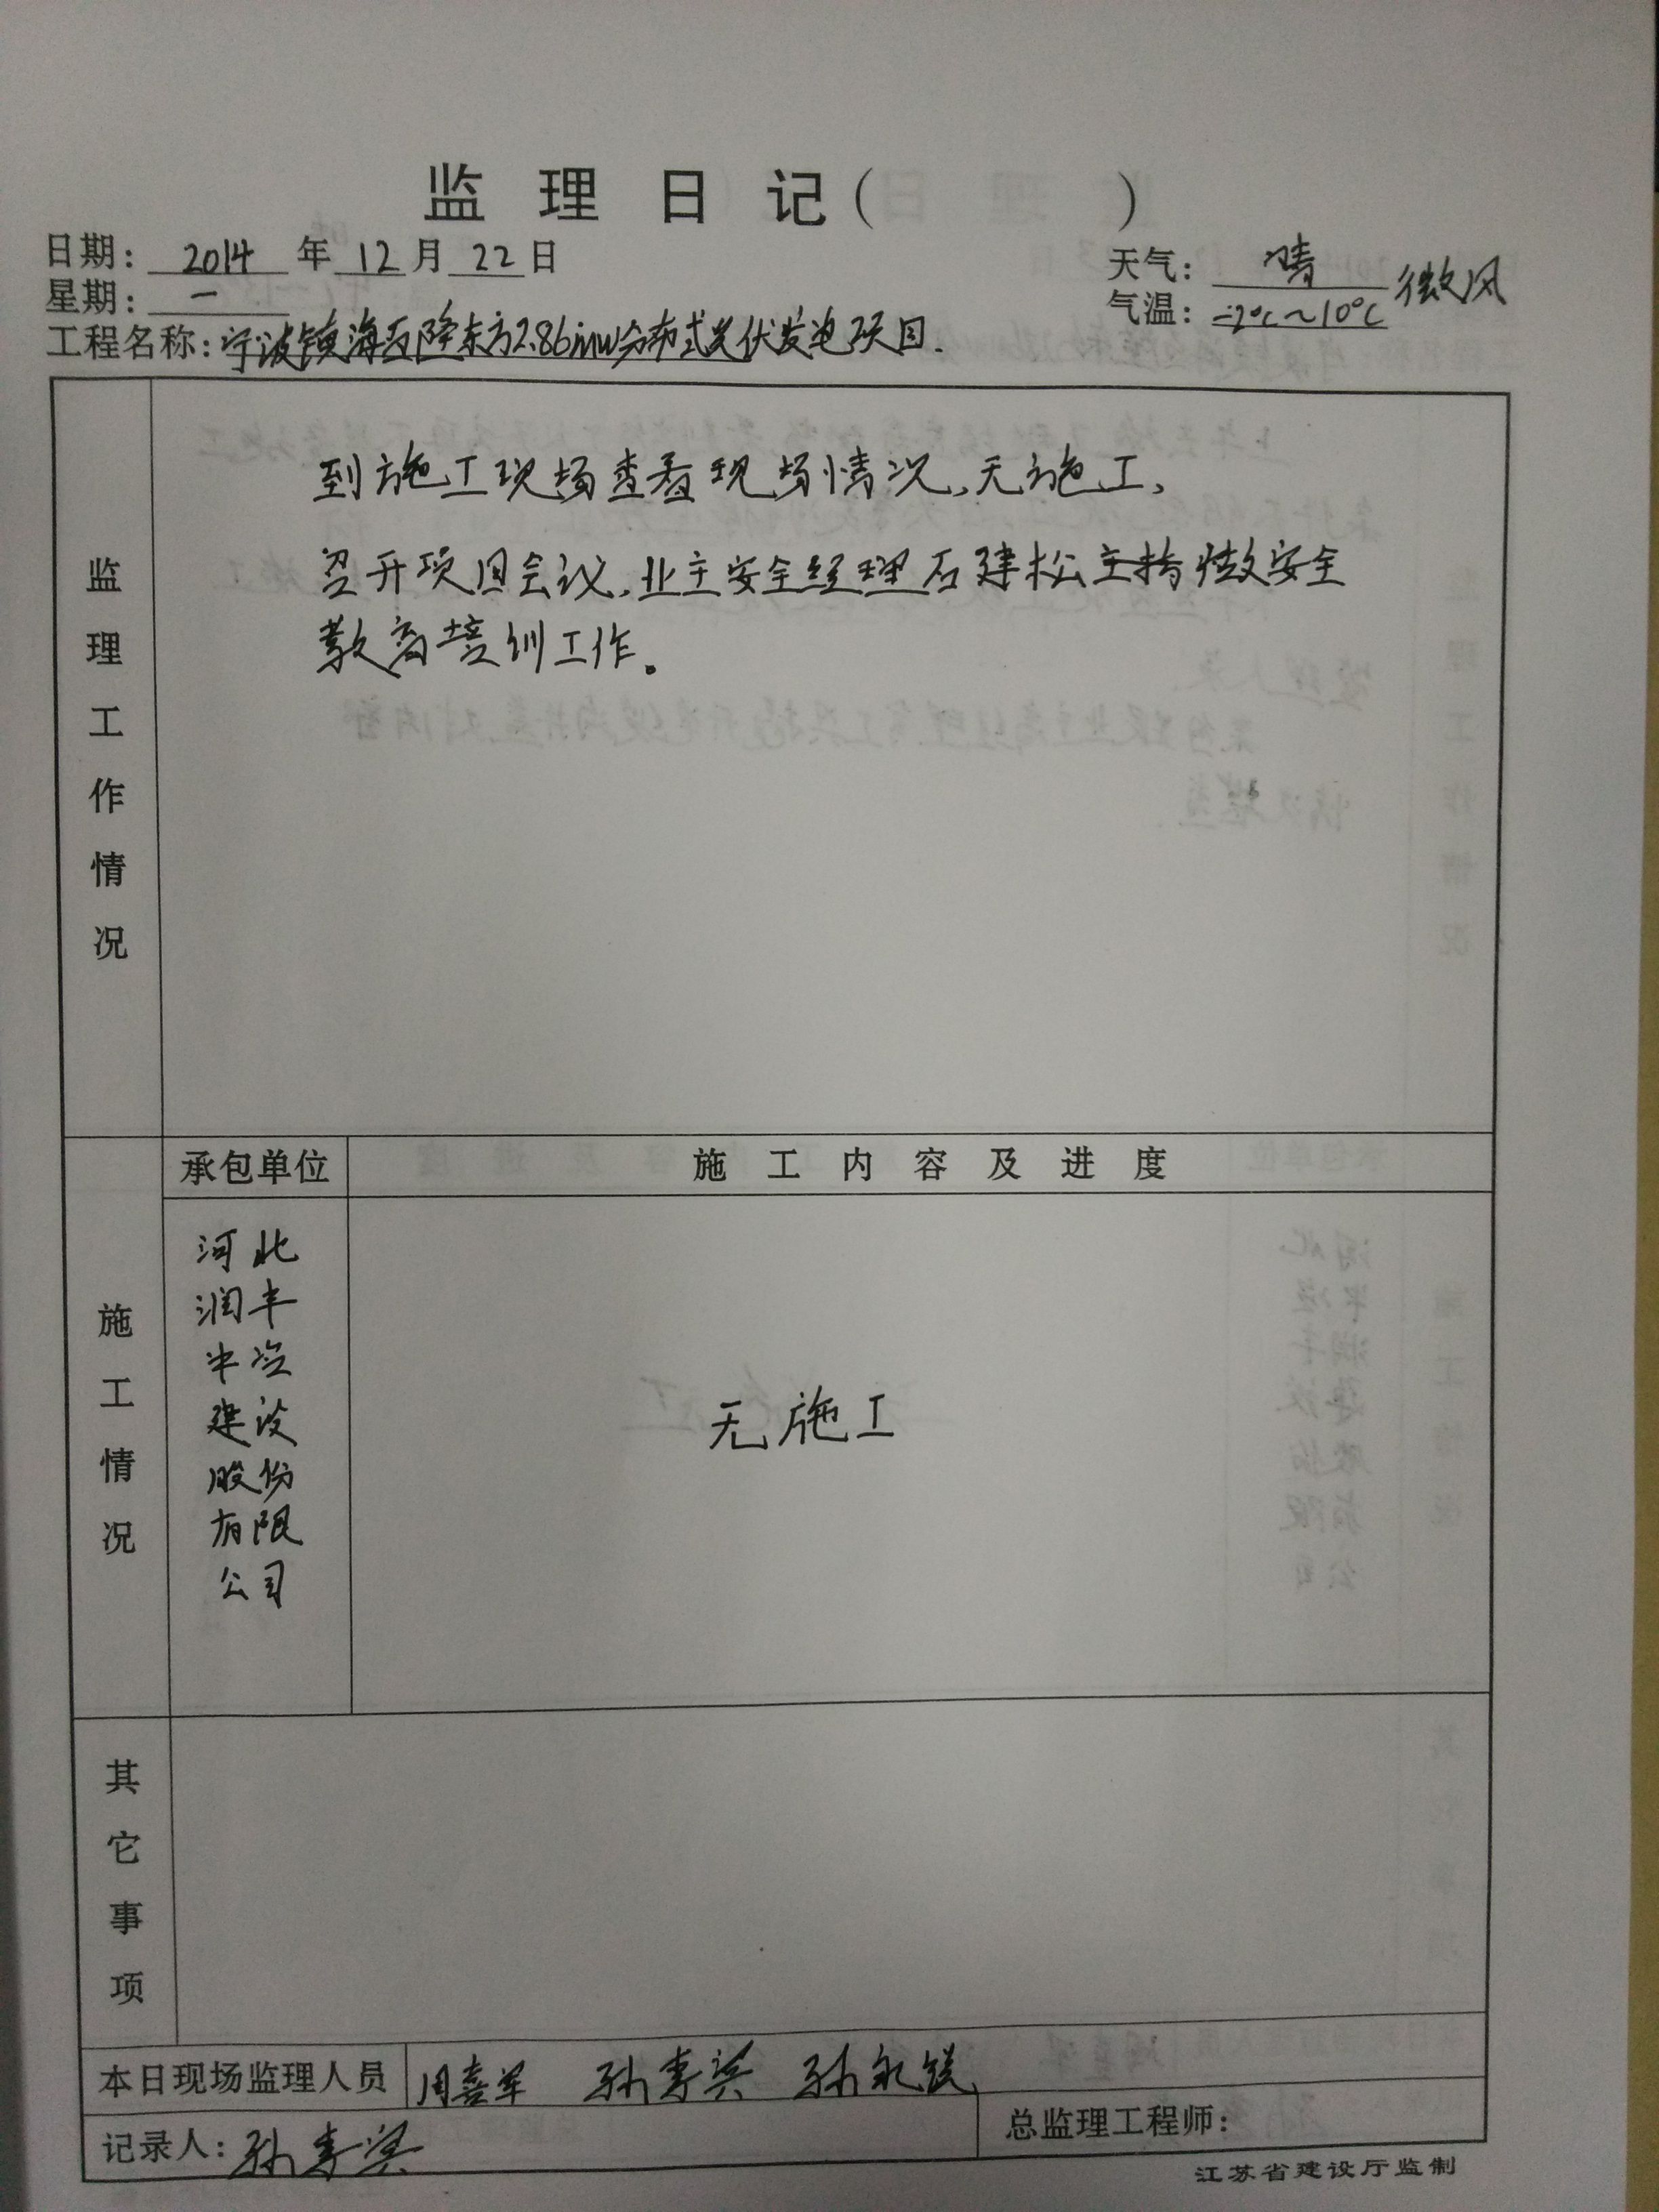 监理日记（ ）
日期：2014年12月22日
天气：晴
星期：一
气温：-2℃～10℃ 微风
工程名称：宁波镇海百隆东方2.86mw分布式光伏发电项目.
监理工作情况
到施工现场查看现场情况,无施工,
召开项目会议,业主安全经理石建松主持做安全
教育培训工作。
施工情况
承包单位
施工内容及进度
河北
润丰
建设
股份
有限
公司
无施工
其它事项
本日现场监理人员
周喜军 孙孝宾 孙永
记录人：孙孝宾
总监理工程师：
江苏省建设厅监制